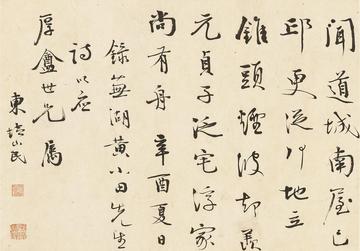 聞道城南屋已
邱更從何地立
錐頭煙波却羨
元貞子泛宅浮家
尚有舟 辛酉夏日
錄蕪湖黃小田先生
詩以应
厚盦世兄屬
東培山民